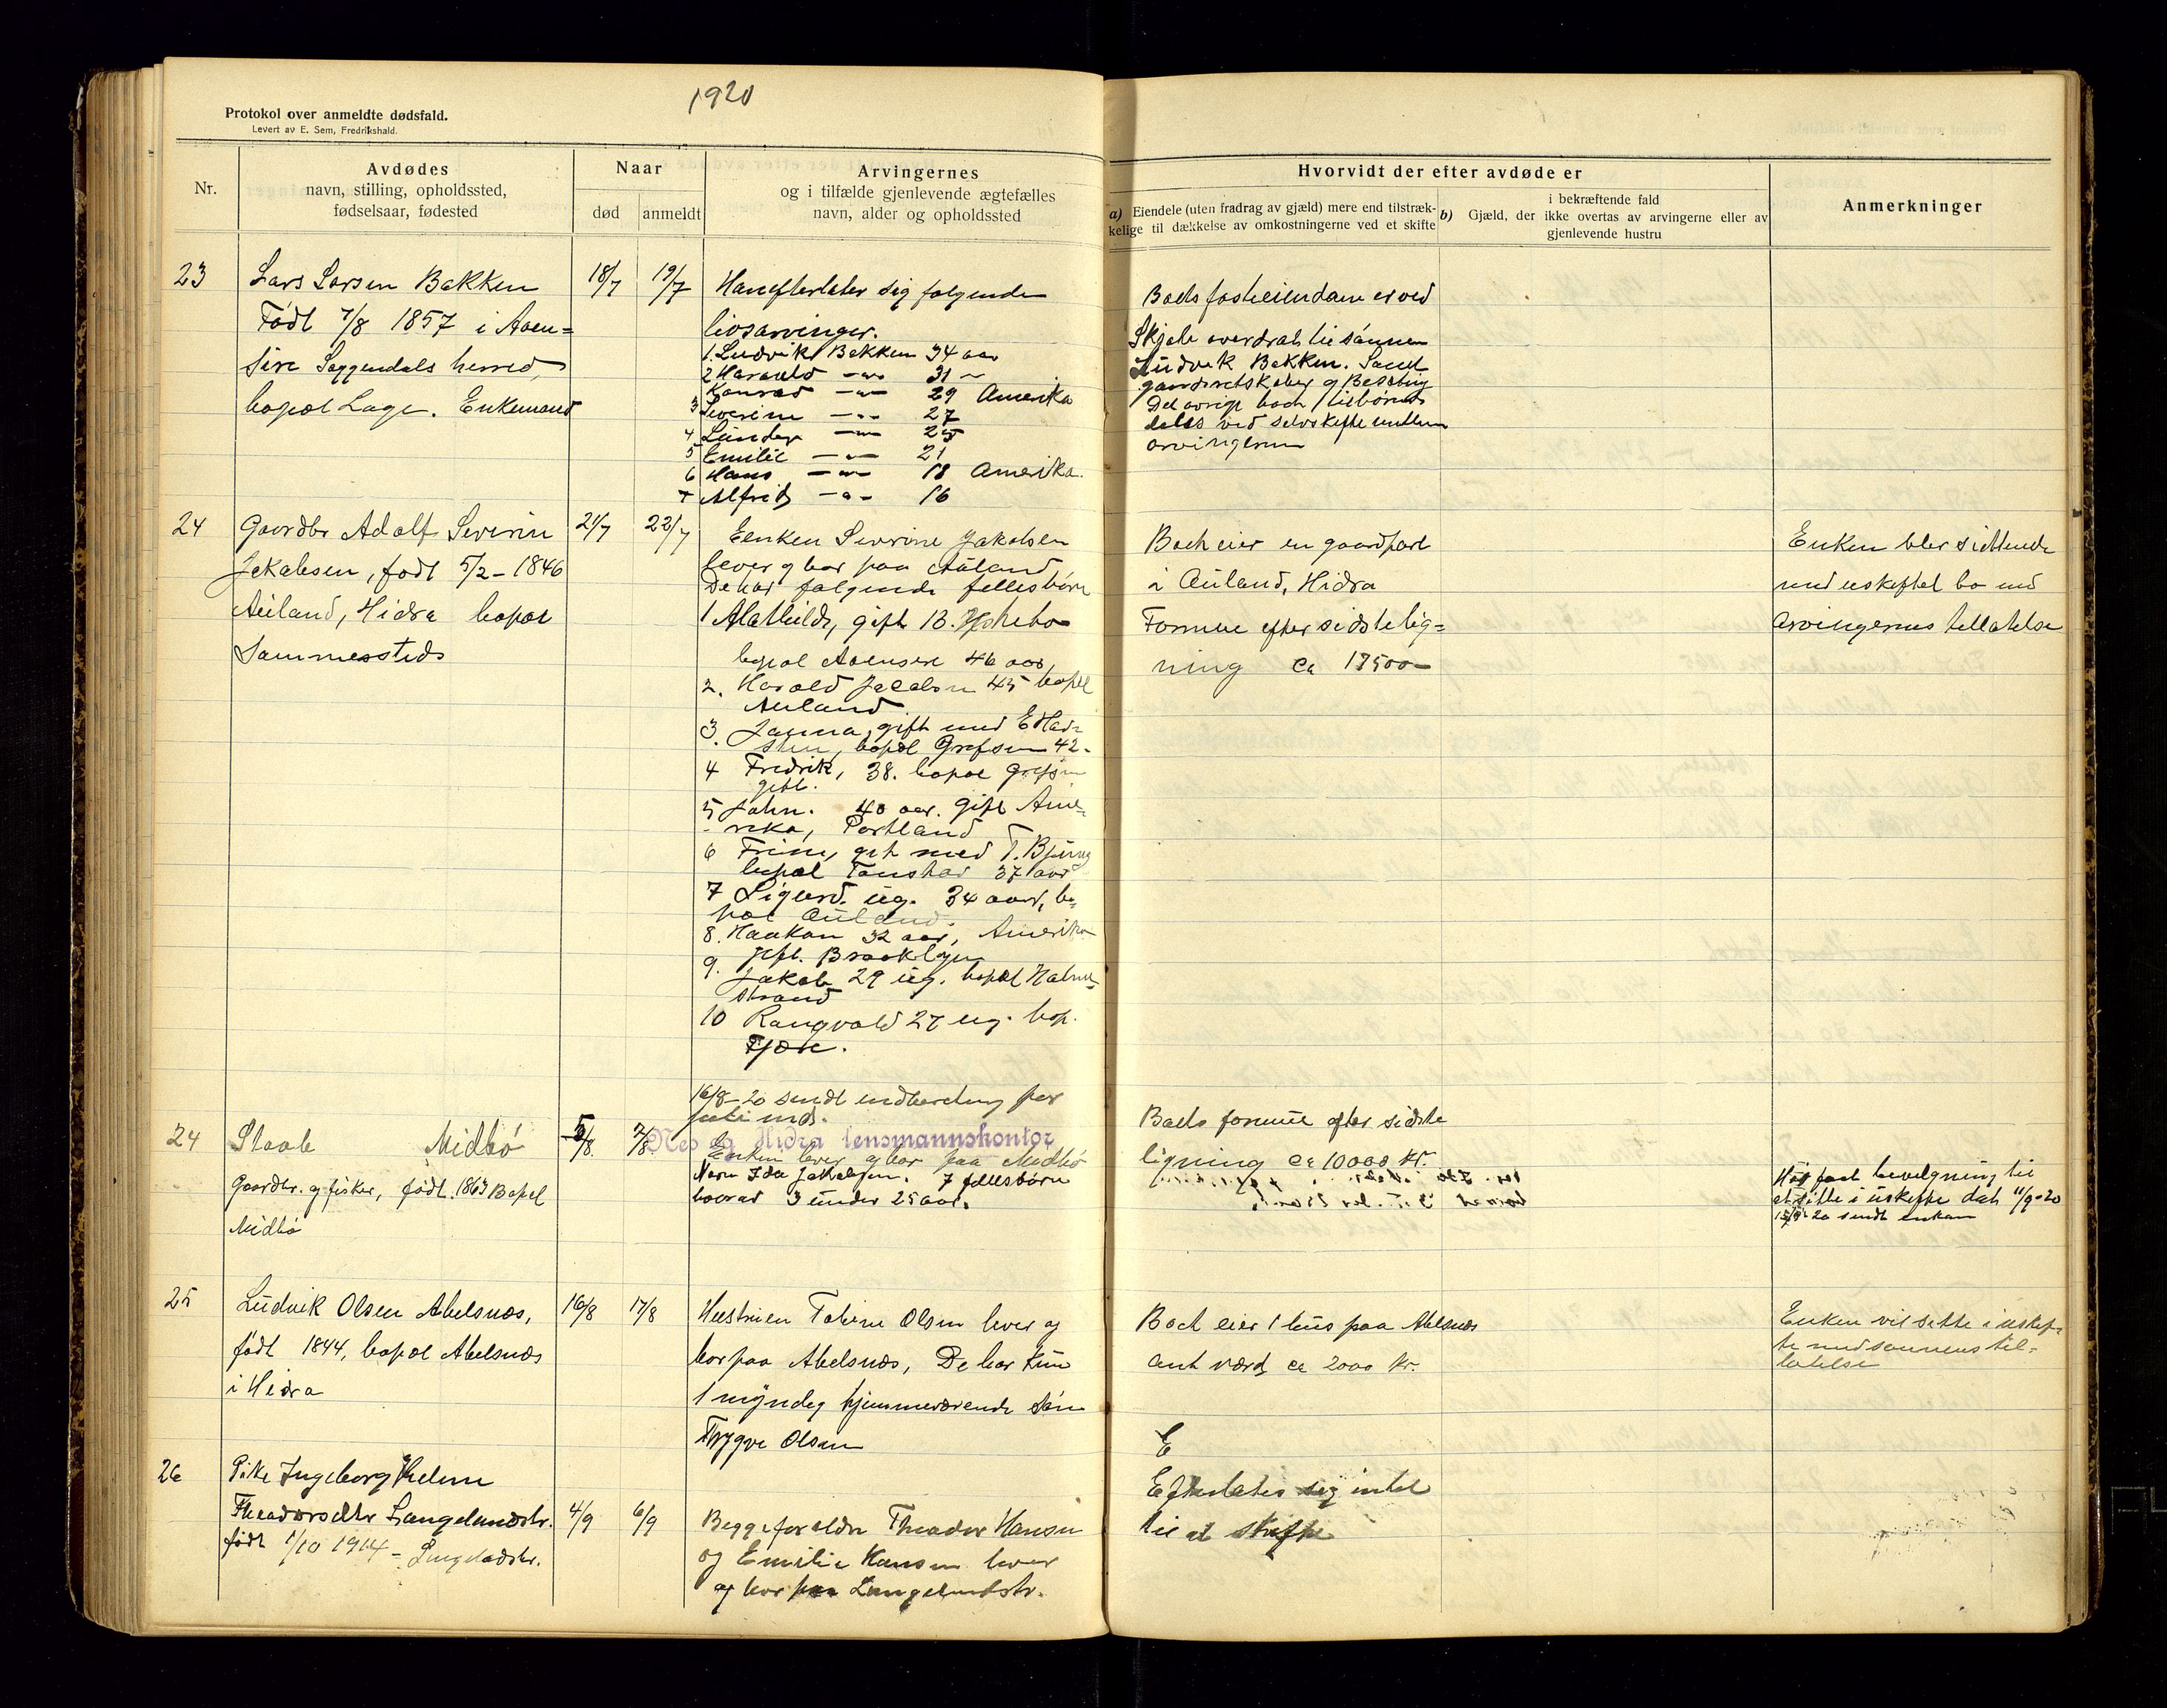 1920
Protokol over anmeldte dødsfald.
Levert av E. Sem, Fredrikshald.
Nr.
Avdødes
navn, stilling, opholdssted,
fødselsaar, fødested
Naar
død
anmeldt
Arvingernes
og i tilfælde gjenlevende ægtefælles
navn, alder og opholdssted
Hvorvidt der efter avdøde er
a) Eiendele (uten fradrag av gjæld) mere end tilstræk-
kelige til dækkelse av omkostningerne ved et skifte
b) Gjæld, der i bekræftende fald ikke overtas av arvingerne eller av
gjenlevende hustru
Anmerkninger
23
Lars Larsen Bakken
Født 7/8 1857 i Aaen=
sire Soggendals herred,
bopæl Lage. Enkemand
18/7
19/7
Han efterlater sig følgende
livsarvinger.
1. Ludvik Bakken 34 aar
2 Harald — 31 —
Konrad — 29 Amerika
3 Severine — 27
4 — 25
5 Emilie — 21
6 Hans — 18 Amerika.
7 Alfred — 16
Boets fasteiendom er ved
Skjøte overdrat til sønnen
Ludvik Bakken. Samt
gaardsredskaber og Besætning
Det øvrige bo
deles ved selvskifte mellem
arvingerne
24
Gaardbr Adolf Severin
Jakobsen, født 5/2 - 1846
Auland, Hidra bopæl
Sammesteds
21/7
22/7
Enken Severine Jakobsen
lever og bor paa Auland
De har følgende fellesbørn
1 Mathilde, gift B.
bopæl Aaensire 46 aar,
2. Harald Jacobsen 45 bopæl
Auland
3. Janna, gift med E
bopæl Grefsen 42 -
4 Fredrik, 38. bopæl Grefsen
gift.
5 John. 40 aar. gift Ame-
rika, Portland
6 Trine, gift med T.
bopæl 37 aar
7 Sigurd. ug. 34 aar, bo-
pæl Auland.
8. Haakon 32 aar, Amerika
gift. Brooklyn
9. Jakob 29 ug. bopæl Holme-
strand
10 Rangvald 27 ug. bop.
Fjære.
Boet eier en gaardpart
i Auland, Hidra
Formue efter sidste lig=
ning ca 17500 —
Enken blir sittende
med uskiftet bo med
Arvingernes tillatelse
16/8 - 20 sendt indberetning
Nes og Hidra lensmannskontor
24
Midbø
Gaardbr. og fisker, født 1863 Bopæl
Midbø
5/8.
7/8.
Enken lever og bor paa Midbø
Navn Ida Jakobsen. 7 fellesbørn
hvorav 3 under 25 aar.
Boets formue efter sidste
ligning ca 10000 kr.
Har faat bevilgning til
at sitte i uskifte dat 11/9-20
15/9 20 sendt enken
25
Ludvik Olsen Abelsnæs,
født 1844, bopæl Abelsnæs
i Hidra
16/8
17/8
Hustruen Tobine Olsen lever og
bor paa Abelsnæs, De har kun
1 myndig hjemmeværende søn
Trygve Olsen
Boet eier 1 hus paa Abelsnæs
ant værd ca 2000 kr.
Enken vil sitte i uskif-
te med sønnens til=
latelse
26
Pike Ingeborg Helene
Theodorsdtr Langelandstr.
født 1/10 1914 -
4/9
6/9
Begge foreldre Theodor Hansen
og Emilie Hansen lever
og bor paa Langelandstr.
E
Efterlater sig intet
til at skifte